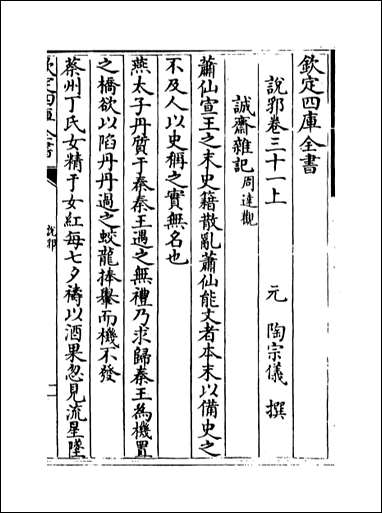 欽定四庫全書
說郛卷三十一上
元 陶宗儀 撰
誠齋雜記 周達觀
蕭仙宣王之末史籍散亂蕭仙能文者本末以備史之
不及人以史稱之實無名也
燕太子丹質于秦秦王遇之無禮乃求歸秦王為機置
之橋欲以陷丹丹過之蛟龍捧轝而機不發
蔡州丁氏女精于女紅每七夕禱以酒果忽見流星墜
欽定四庫全書
說郛